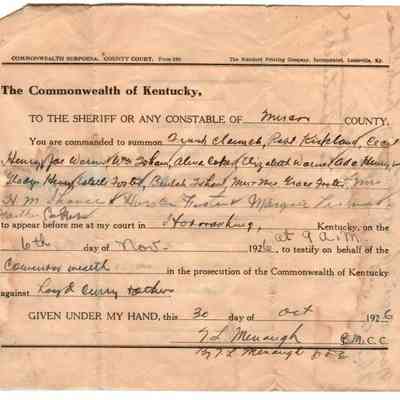 COMMONWEALTH SUBPOENA. COUNTY COURT. Form The Standard Printing Company, Incorporated, Louisville, Ky.
The Commonwealth of Kentucky,
TO THE SHERIFF OR ANY CONSTABLE OF Mercer COUNTY.
You are commanded to summon Frank Paul Kirkland, Cecil
Henry, Joe Warner Wm Isham, Alma Coke, Elizabeth Warner Ada Henry,
Gladys Henry, Estelle Foster, Beulah Isham, Grace Foster, Mrs
H. M. Foster Margaret
to appear before me at my court in Harrodsburg, Kentucky, on the
6th day of Nov. 1926, at 9 A.M. to testify on behalf of the
Commonwealth in the prosecution of the Commonwealth of Kentucky
against Loyd Curry & others
GIVEN UNDER MY HAND, this 30 day of Oct 1926
T. L. Menaugh C. M. C. C
By T. L. Menaugh D. C.